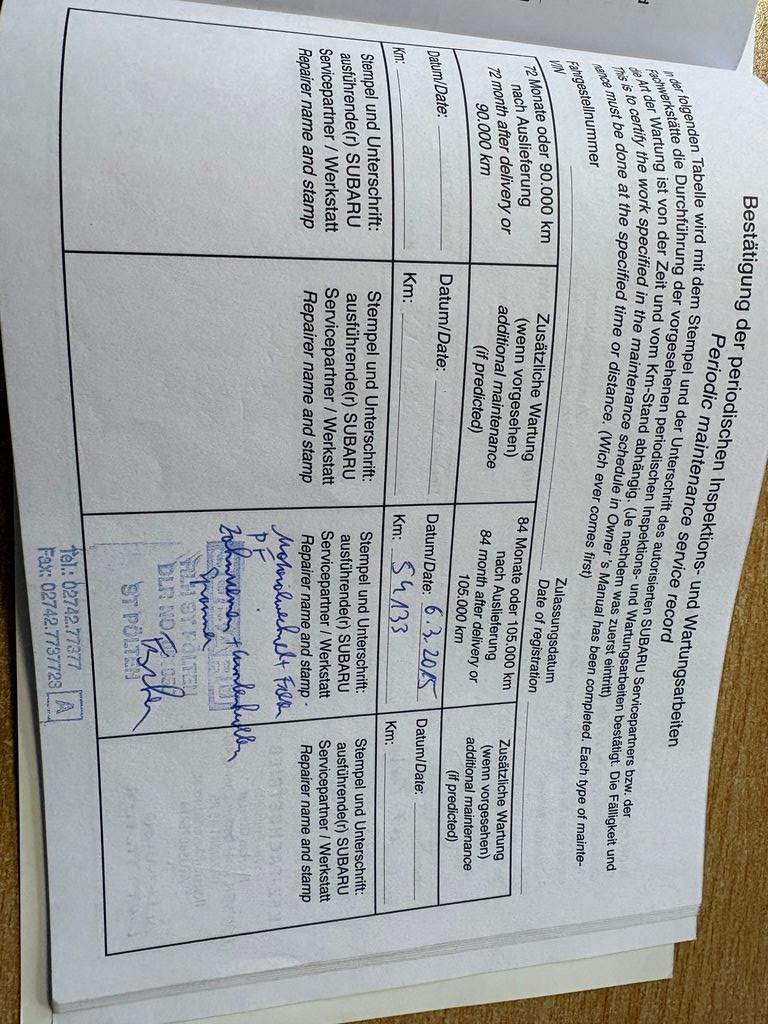 Bestätigung der periodischen Inspektions- und Wartungsarbeiten
Periodic maintenance service record
In der folgenden Tabelle wird mit dem Stempel und der Unterschrift des autorisierten SUBARU Servicepartners bzw. der
Fachwerkstätte die Durchführung der vorgesehenen periodischen Inspektions- und Wartungsarbeiten bestätigt. Die Fälligkeit und
die Art der Wartung ist von der Zeit und vom Km-Stand abhängig. (Je nachdem was zuerst eintritt)
This is to certify the work specified in the maintenance schedule in Owner's Manual has been completed. Each type of mainte-
nance must be done at the specified time or distance. (Wich ever comes first)
Fahrgestellnummer
VIN
Zulassungsdatum
Date of registration
72 Monate oder 90.000 km
nach Auslieferung
72 month after delivery or
90.000 km
Datum/Date:
Km:
Stempel und Unterschrift:
ausführende(r) SUBARU
Servicepartner / Werkstatt
Repairer name and stamp
Zusätzliche Wartung
(wenn vorgesehen)
additional maintenance
(if predicted)
Datum/Date:
Km:
Stempel und Unterschrift:
ausführende(r) SUBARU
Servicepartner / Werkstatt
Repairer name and stamp
84 Monate oder 105.000 km
nach Auslieferung
84 month after delivery or
105.000 km
Datum/Date: 6.3.2015
Km: 54133
Stempel und Unterschrift:
ausführende(r) SUBARU
Servicepartner / Werkstatt
Repairer name and stamp
PF
ST PÖLTEN
Tel.: 02742.77377
Fax: 02742.7737723 A
Zusätzliche Wartung
(wenn vorgesehen)
additional maintenance
(if predicted)
Datum/Date:
Km:
Stempel und Unterschrift:
ausführende(r) SUBARU
Servicepartner / Werkstatt
Repairer name and stamp